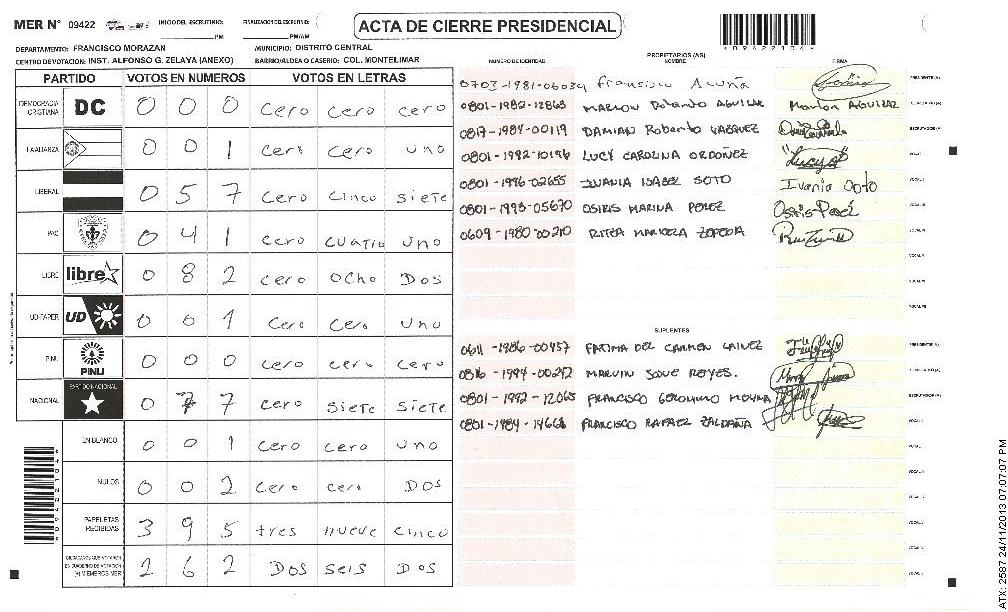 MER N° 09422 INICIO DEL ESCRUTINIO: PM FINALIZACION DEL ESCRUTINIO: PM/AM
ACTA DE CIERRE PRESIDENCIAL
DEPARTAMENTO: FRANCISCO MORAZAN MUNICIPIO: DISTRITO CENTRAL
CENTRO DE VOTACION: INST. ALFONSO G. ZELAYA (ANEXO) BARRIO/ALDEA O CASERIO: COL. MONTELIMAR
PARTIDO VOTOS EN NUMEROS VOTOS EN LETRAS
DEMOCRACIA CRISTIANA DC 0 0 0 cero cero cero
LA ALIANZA 0 0 1 cero cero uno
LIBERAL 0 5 7 cero cinco siete
PAC 0 4 1 cero cuatro uno
LIBRE libre 0 8 2 cero ocho Dos
UD-FAPER UD 0 0 1 cero cero uno
PINU PINU 0 0 0 cero cero cero
NACIONAL PARTIDO NACIONAL 0 7 7 cero siete siete
EN BLANCO 0 0 1 cero cero uno
NULOS 0 0 2 cero cero DOS
PAPELETAS RECIBIDAS 3 9 5 tres nueve cinco
CIUDADANOS QUE VOTARON EN CUADERNO DE VOTACION (+) MIEMBROS MER 2 6 2 DOS seis DOS
NUMERO DE IDENTIDAD PROPIETARIOS (AS) NOMBRE FIRMA
0703-1981-06034 Francisco Acuña PRESIDENTE(A)
0801-1982-12863 MARLON Rolando AGUILAR Marlon AGUILAR
0817-1984-00119 DAMIAN Roberto VASQUEZ ESCRUTADOR(A)
0801-1992-10196 LUCY CAROLINA ORDOÑEZ "Lucy" VOCAL I
0801-1996-02655 IVANIA ISABEL SOTO Ivania Soto
0801-1993-05670 OSIRIS MARINA PEREZ Osiris Perez
0609-1980-00210 RITZA MARICZA ZEPEDA
SUPLENTES
0611-1986-00457 FATIMA DEL CARMEN LAINEZ PRESIDENTE(A)
0816-1994-00242 MARVIN JOSUE REYES.
0801-1992-12065 FRANCISCO GERONIMO MOLINA ESCRUTADOR(A)
0801-1984-14661 FRANCISCO RAFAEL ZALDAÑA VOCAL I
ATX: 2587 24/11/2013 07:07:07 PM